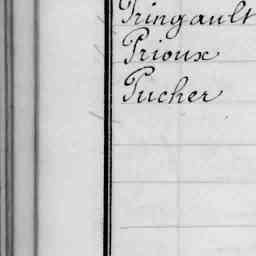 Pringault
Prioux
Pucher